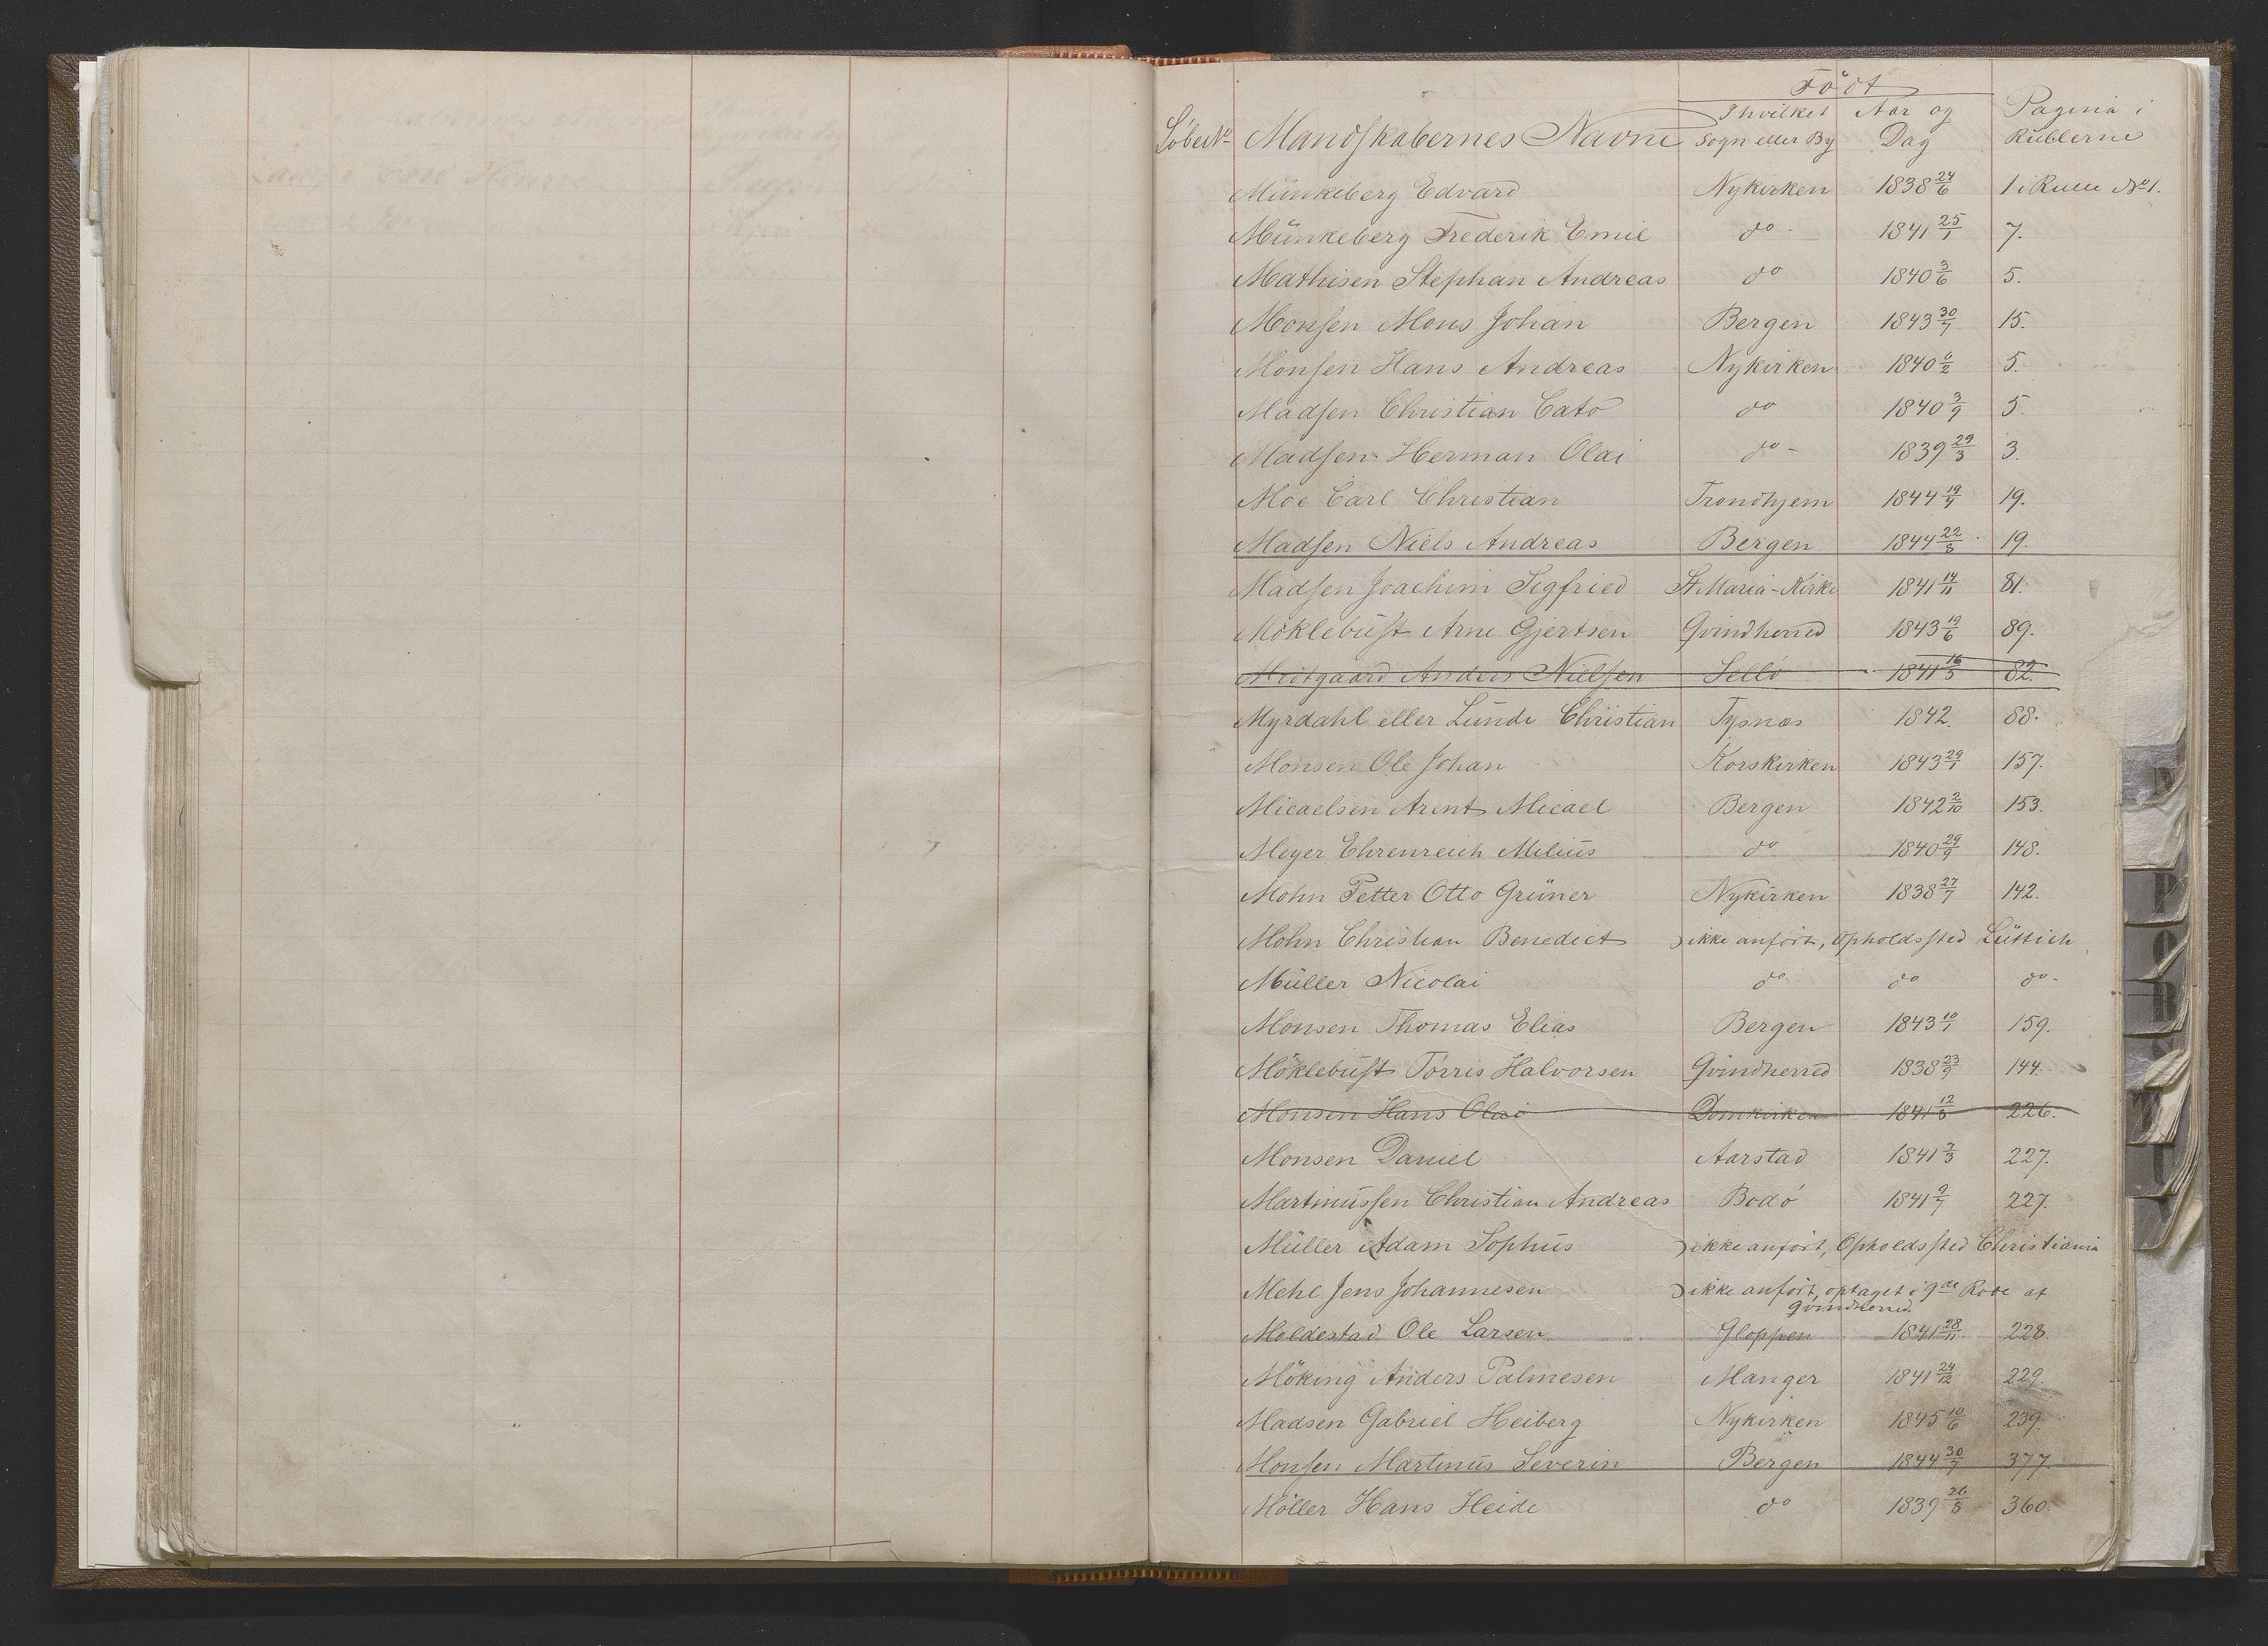 Født
Løbe No Mandskabernes Navne I hvilket Sogn eller By Aar og Dag Pagina i Rullerne
Münkeberg Edvard Nykirken 1838 24/6 1 i Rulle No 1.
Münkeberg Frederik Emil do - 1841 25/1 7.
Mathisen Stephan Andreas do 1840 3/6 5.
Monsen Mons Johan Bergen 1843 30/7 15.
Monsen Hans Andreas Nykirken 1840 6/2 5.
Madsen Christian Cato do 1840 3/9 5.
Madsen Herman Olai do - 1839 29/3 3.
Moe Carl Christian Trondhjem 1844 19/4 19.
Madsen Niels Andreas Bergen 1844 22/8 19.
Madsen Joachim Segfried St Maria-Kirke 1841 14/11 81.
Möklebust Arne Gjertsen Qvindherred 1843 19/6 89.
Midtgaard Anders Nielsen Sellö 1841 16/5 82.
Myrdahl eller Lunde Christian Tysnæs 1842. 88.
Monsen Ole Johan Korskirken 1843 29/1 157.
Micaelsen Arent Micael Bergen 1842 2/10 153.
Meyer Ehrenreich Milius do 1840 29/9 148.
Mohn Petter Otto Grüner Nykirken 1838 27/7 142.
Mohn Christian Benedict ikke anfört, Opholdssted Lüttich
Müller Nicolai do do do -
Monsen Thomas Elias Bergen 1843 10/1 159.
Möklebust Törris Halvorsen Qvindherred 1838 23/9 144.
Monsen Hans Olai Domkirken 1841 12/8 226.
Monsen Daniel Aarstad 1841 7/3 227.
Martinussen Christian Andreas Bodö 1841 9/7 227.
Müller Adam Sophus ikke anfört, Opholdssted Christiania
Mehl Jens Johannesen ikke anfört, optaget i 9de Rode af
Qvindherred.
Moldestad Ole Larsen Gloppen 1841 28/11 228.
Möking Anders Palmesen Manger 1841 24/12 229.
Madsen Gabriel Heiberg Nykirken 1845 10/6 239.
Monsen Martinus Severin Bergen 1844 30/7 377.
Möller Hans Heide do 1839 26/8 360.